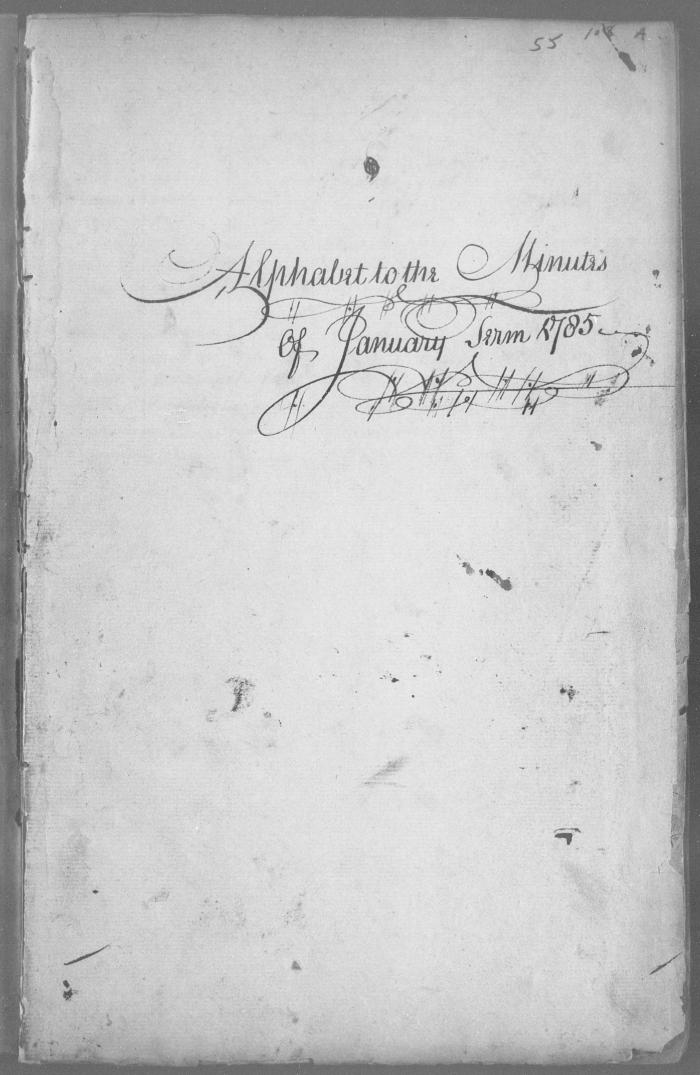 55
Alphabet to the Minutes
Of January Term 1785